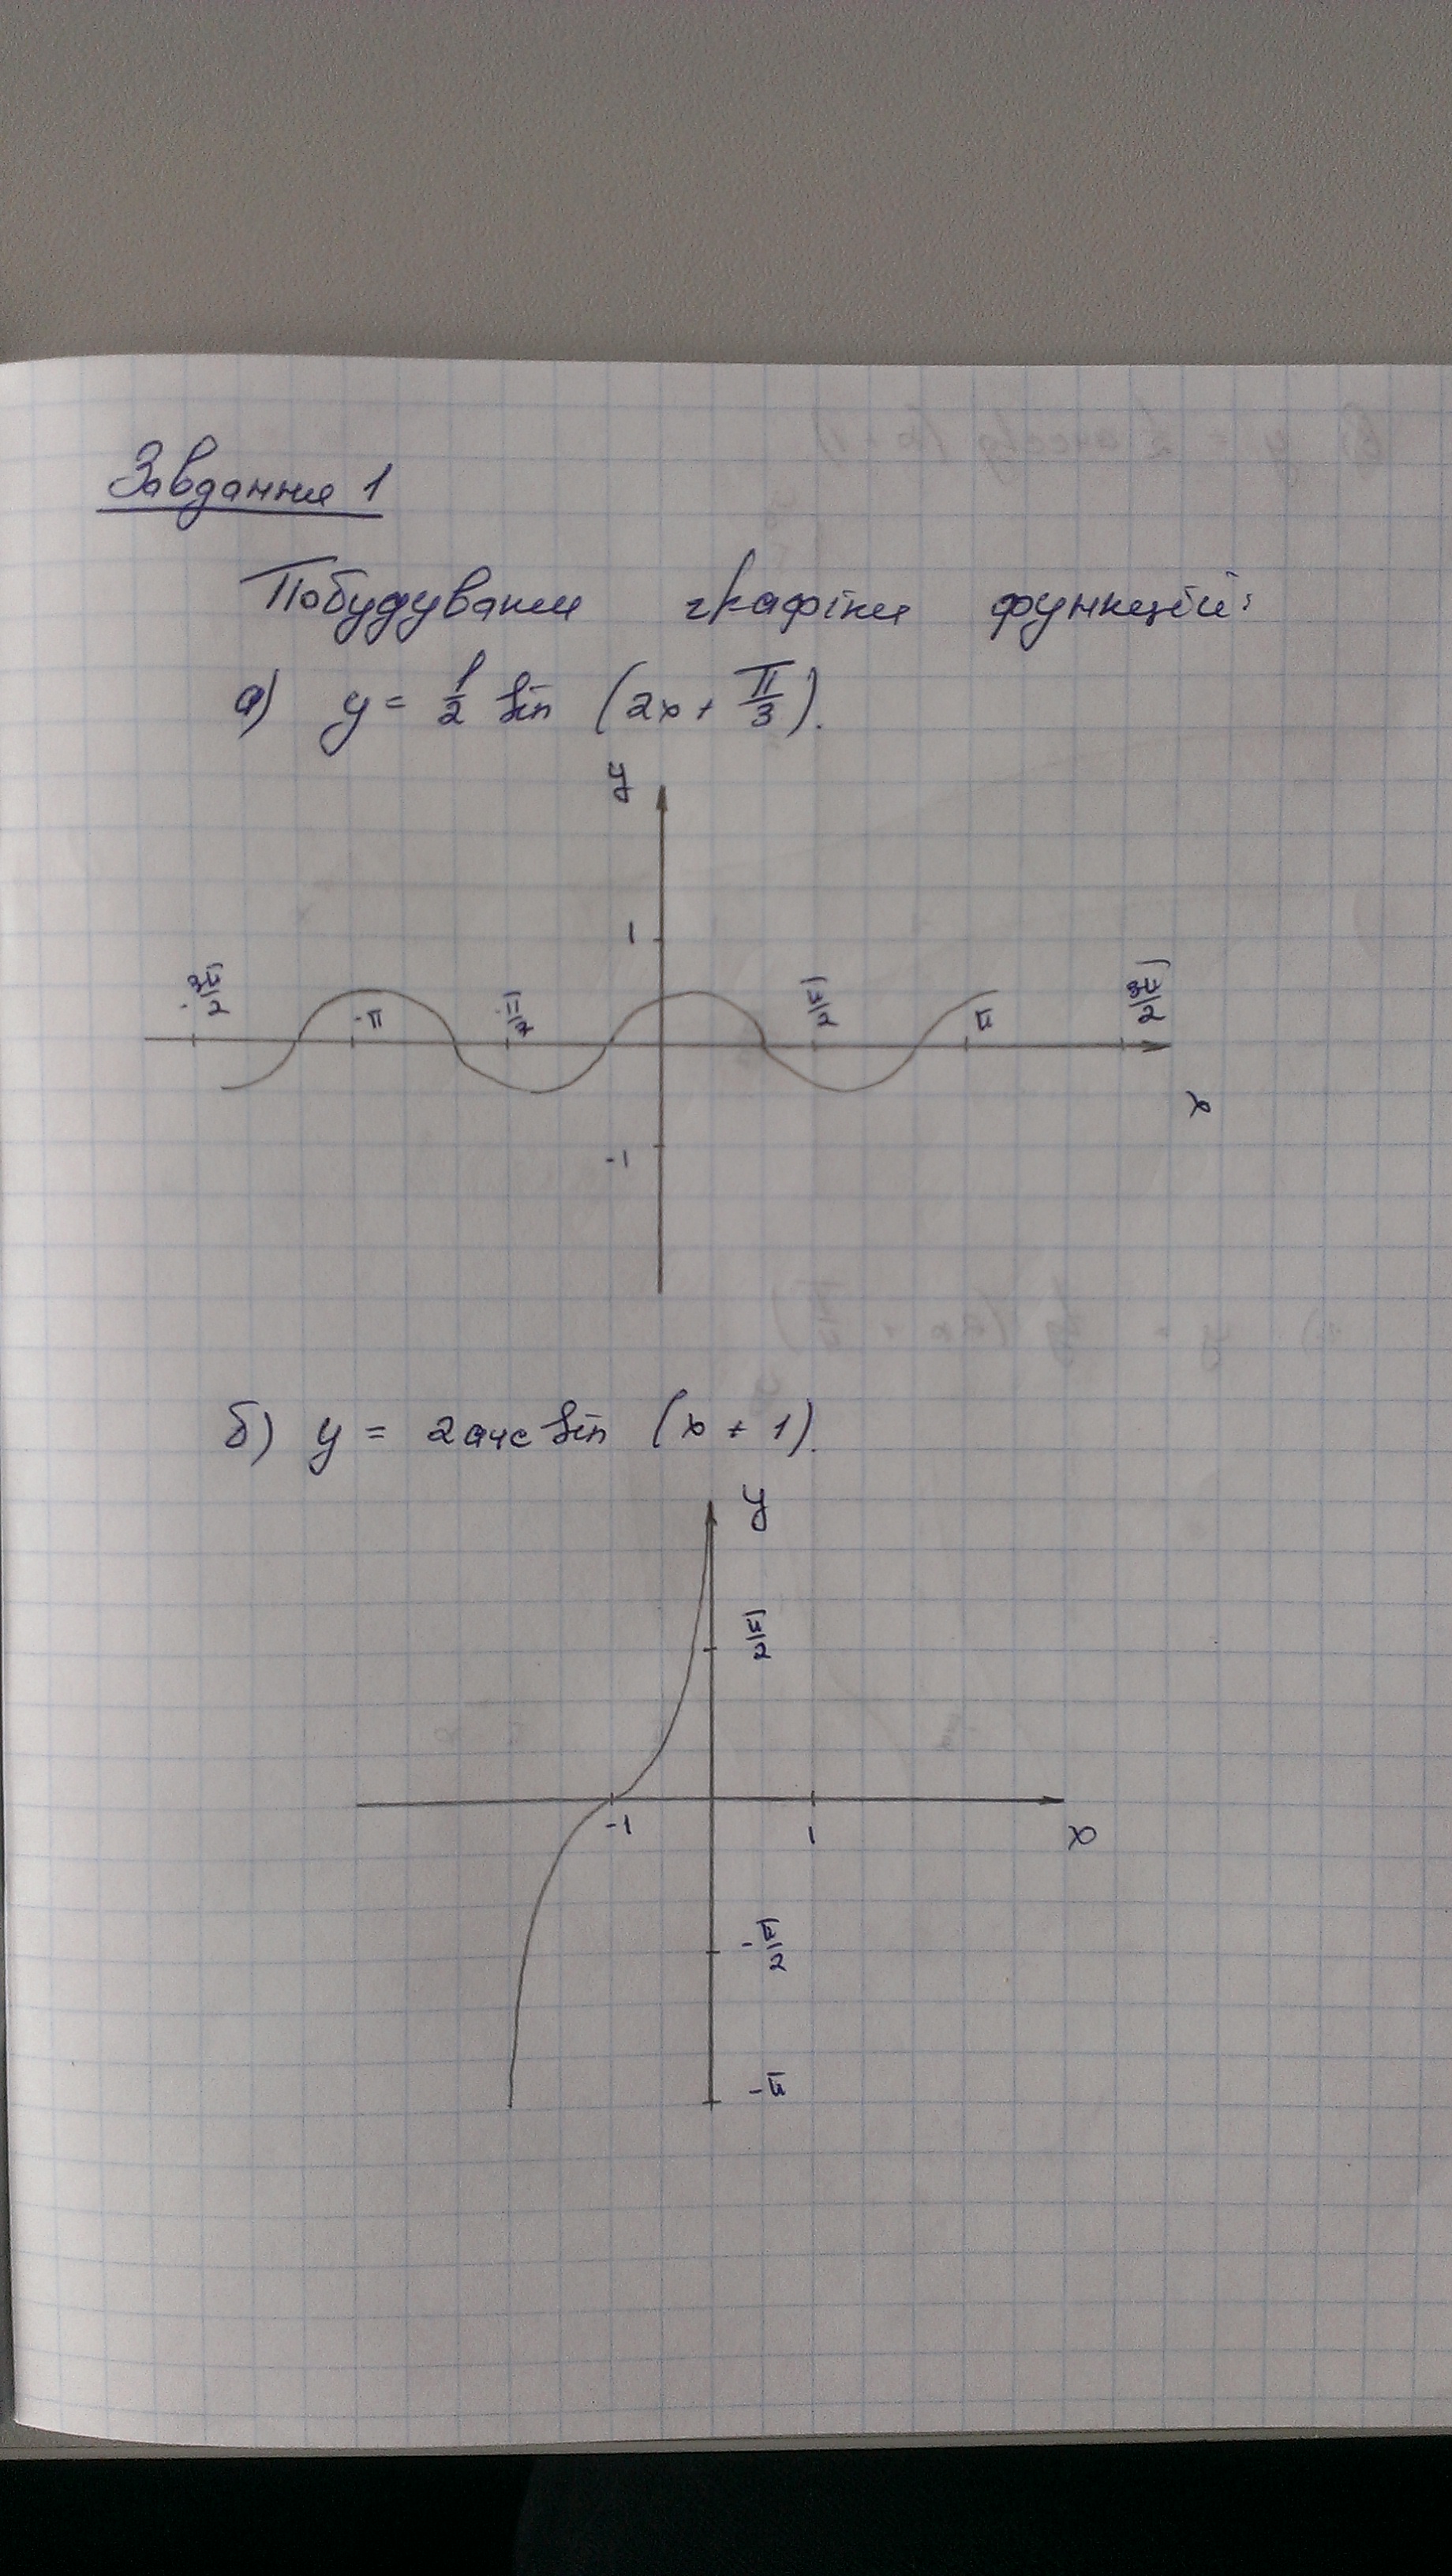 Завдання 1
Побудувати графіки функцій:
а) y = 1/2 sin (2x + π/3).
y
1
-3π/2 -π -π/2 π/2 π 3π/2
x
-1
б) y = 2arcsin (x + 1).
y
π/2
-1 1 x
-π/2
-π